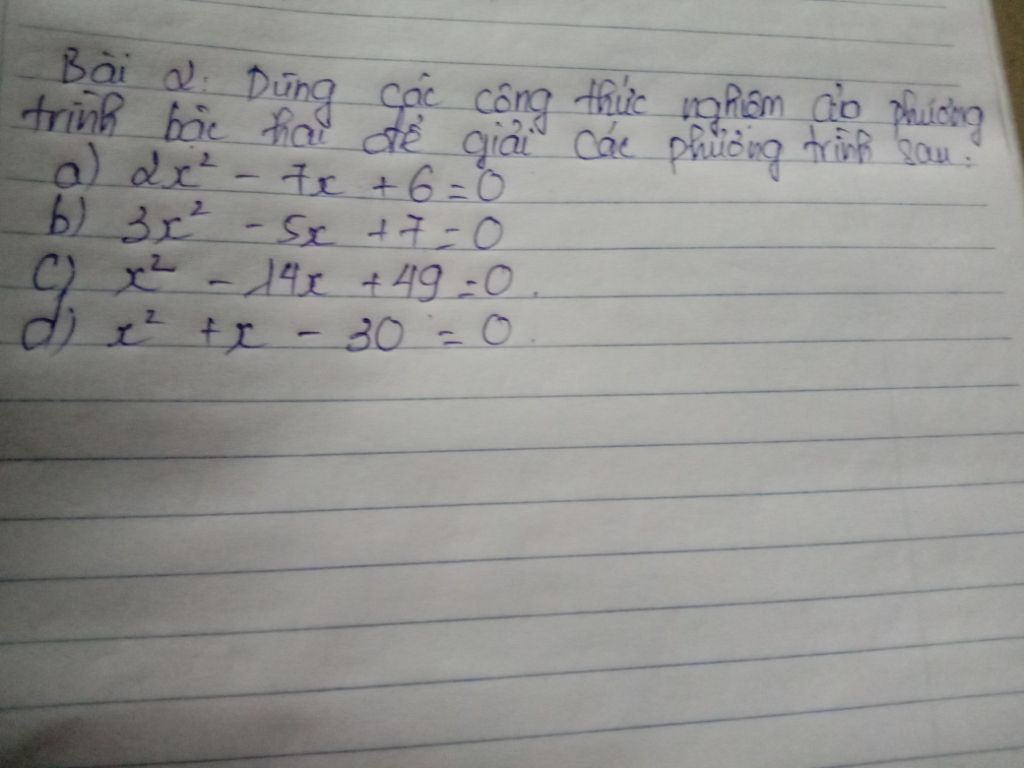 Bài 2: Dùng các công thức nghiệm của phương
trình bậc hai để giải các phương trình sau:
a) 2x² - 7x + 6 = 0
b) 3x² - 5x + 7 = 0
c) x² - 14x + 49 = 0.
d) x² + x - 30 = 0.